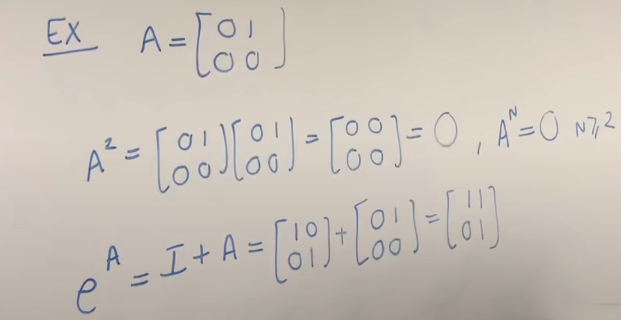 EX A = [0 1; 0 0]
A² = [0 1; 0 0][0 1; 0 0] = [0 0; 0 0] = 0 , Aᴺ = 0 N ≥ 2
eᴬ = I + A = [1 0; 0 1] + [0 1; 0 0] = [1 1; 0 1]